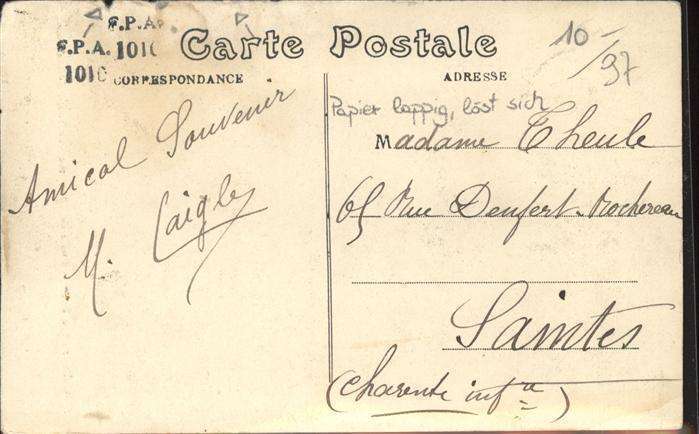 F.P.A.
F.P.A. 1010
1010
Carte Postale
CORRESPONDANCE
ADRESSE
10-
/97
Papier lappig, löst sich
Amical Souvenir
M. Caigle
Madame Theule
65 Rue Denfert-Rochereau
Saintes
(Charente infre)